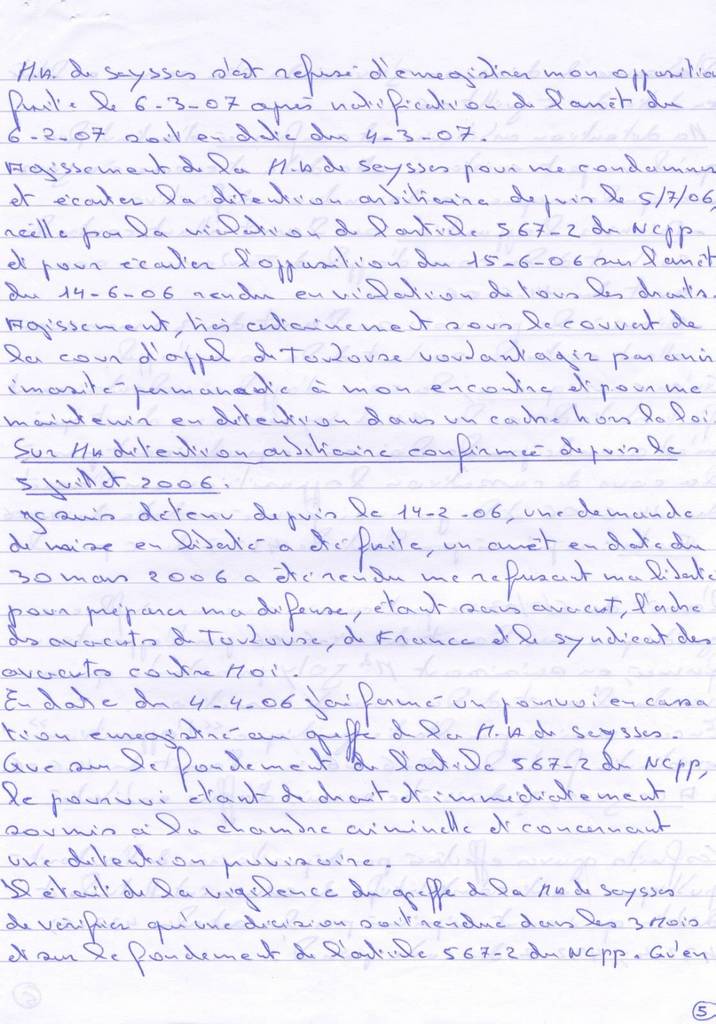 M.A. de Seysses s'est refusé d'enregistrer mon opposition
faite le 6-3-07 après notification de l'arrêt du
6-2-07 soit en date du 4-3-07.
Agissement de la M.A de Seysses pour me condamner
et écarter la détention arbitraire depuis le 5/7/06,
réelle par la violation de l'article 567-2 du NCPP
et pour écarter l'opposition du 15-6-06 sur l'arrêt
du 14-6-06 rendu en violation de tous les droits.
Agissement, très certainement sous le couvert de
la cour d'appel de Toulouse voulant agir par anni
imosité permanante à mon encontre et pour me
maintenir en détention dans un cadre hors la loi.
Sur Ma détention arbitraire confirmée depuis le
5 juillet 2006.
Je suis détenu depuis le 14-2-06, une demande
de mise en liberté a été faite, un arrêt en date du
30 mars 2006 a été rendu me refusant ma liberté
pour préparer ma défense, étant sans avocat, l'ache
des avocats de Toulouse, de France et le syndicat des
avocats contre Moi.
En date du 4-4-06 j'ai formé un pourvoi en cassa
tion enregistré au greffe de la M.A de Seysses.
Que sur le fondement de l'article 567-2 du NCPP,
le pourvoi étant de droit et immédiatement
soumis à la chambre criminelle et concernant
une détention provisoire.
Il était de la vigilence du greffe de la MA de Seysses
de vérifier qu'une décision soit rendue dans les 3 Mois
et sur le fondement de l'article 567-2 du NCPP. Qu'en
5